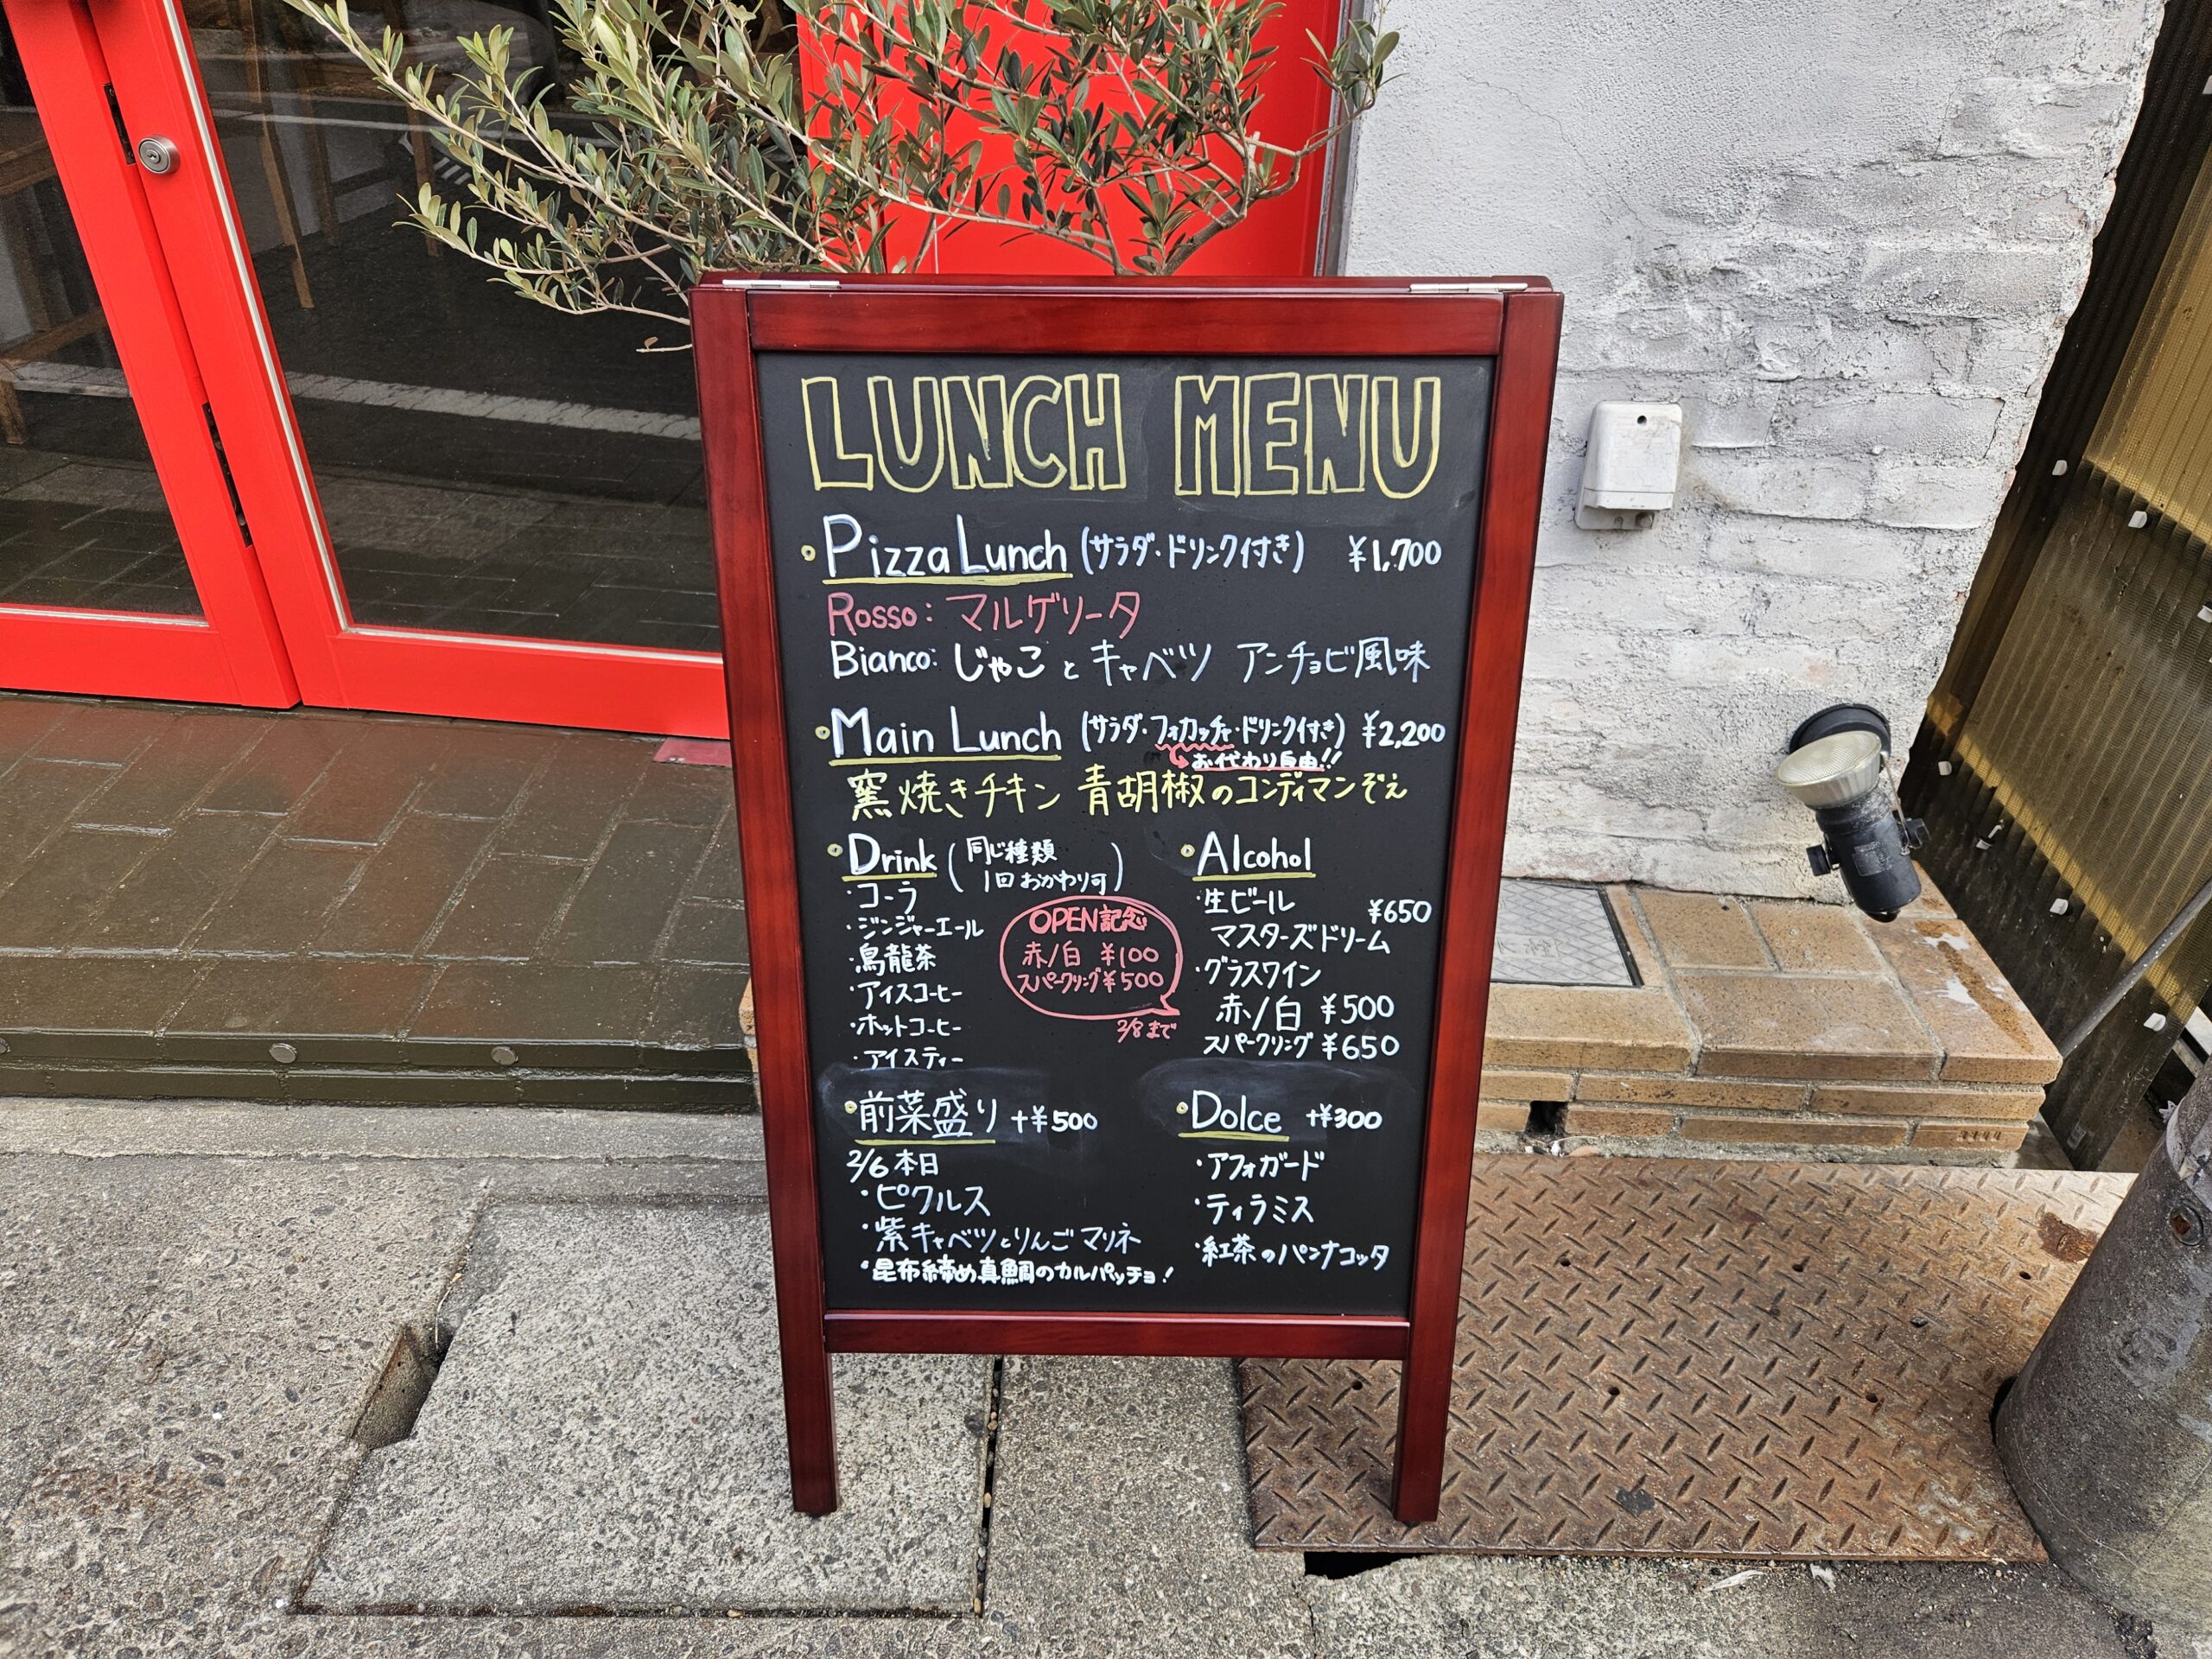 LUNCH MENU
Pizza Lunch (サラダ・ドリンク付き) ¥1,700
Rosso: マルゲリータ
Bianco: じゃことキャベツ アンチョビ風味
Main Lunch (サラダ・フォカッチャ・ドリンク付き) ¥2,200
お代わり自由!!
窯焼きチキン 青胡椒のコンディマンぞえ
Drink (同じ種類 1回おかわり可)
・コーラ
・ジンジャーエール
・烏龍茶
・アイスコーヒー
・ホットコーヒー
・アイスティー
OPEN記念
赤/白 ¥100
スパークリング ¥500
2/8まで
Alcohol
・生ビール ¥650
マスターズドリーム
・グラスワイン
赤/白 ¥500
スパークリング ¥650
前菜盛り +¥500
2/6 本日
・ピクルス
・紫キャベツとりんごマリネ
・昆布締め真鯛のカルパッチョ!
Dolce +¥300
・アフォガード
・ティラミス
・紅茶のパンナコッタ